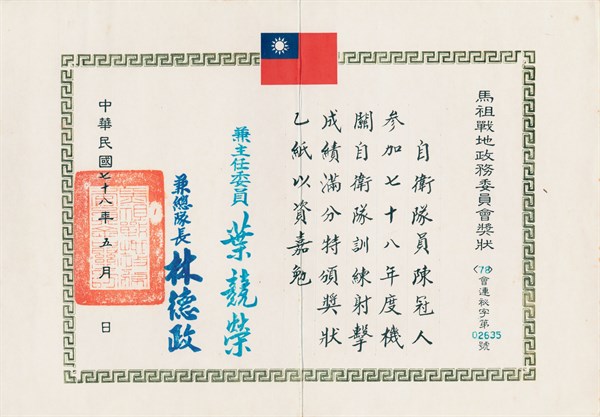 馬祖戰地政務委員會獎狀
(78)會連秘字第02635號
自衛隊員陳冠人
參加七十八年度機
關自衛隊訓練射擊
成績滿分特頒獎狀
乙紙以資嘉勉
兼主任委員 葉競榮
兼總隊長 林德政
中華民國七十八年五月 日